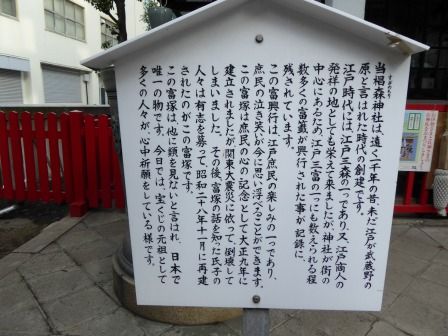 当椙森神社は、遠く一千年の昔、未だ江戸が武蔵野の
原と言はれた時代の創建です。
江戸時代には、江戸三森の一つであり、又、江戸商人の
発祥の地としても栄えて来ましたが、神社が街の
中心にあるため、江戸三富の一つにも数えられる程
数多くの富籤が興行された事が記録に、
残されています。
この富興行は、江戸庶民の楽しみの一つであり、
庶民の泣き笑いが今に思い浮べることができます。
この富塚は庶民の心の記念として大正九年に
建立されましたが関東大震災に依って、倒壊して
しまいました。その後、富塚の話を知った氏子の
人々は有志を募って、昭和二十八年十一月に再建
されたのがこの富塚です。
この富塚は、他に類を見ないと言はれ、日本で
唯一の物です。今日では、宝くじの元祖として
多くの人々が、心中祈願をしている様です。